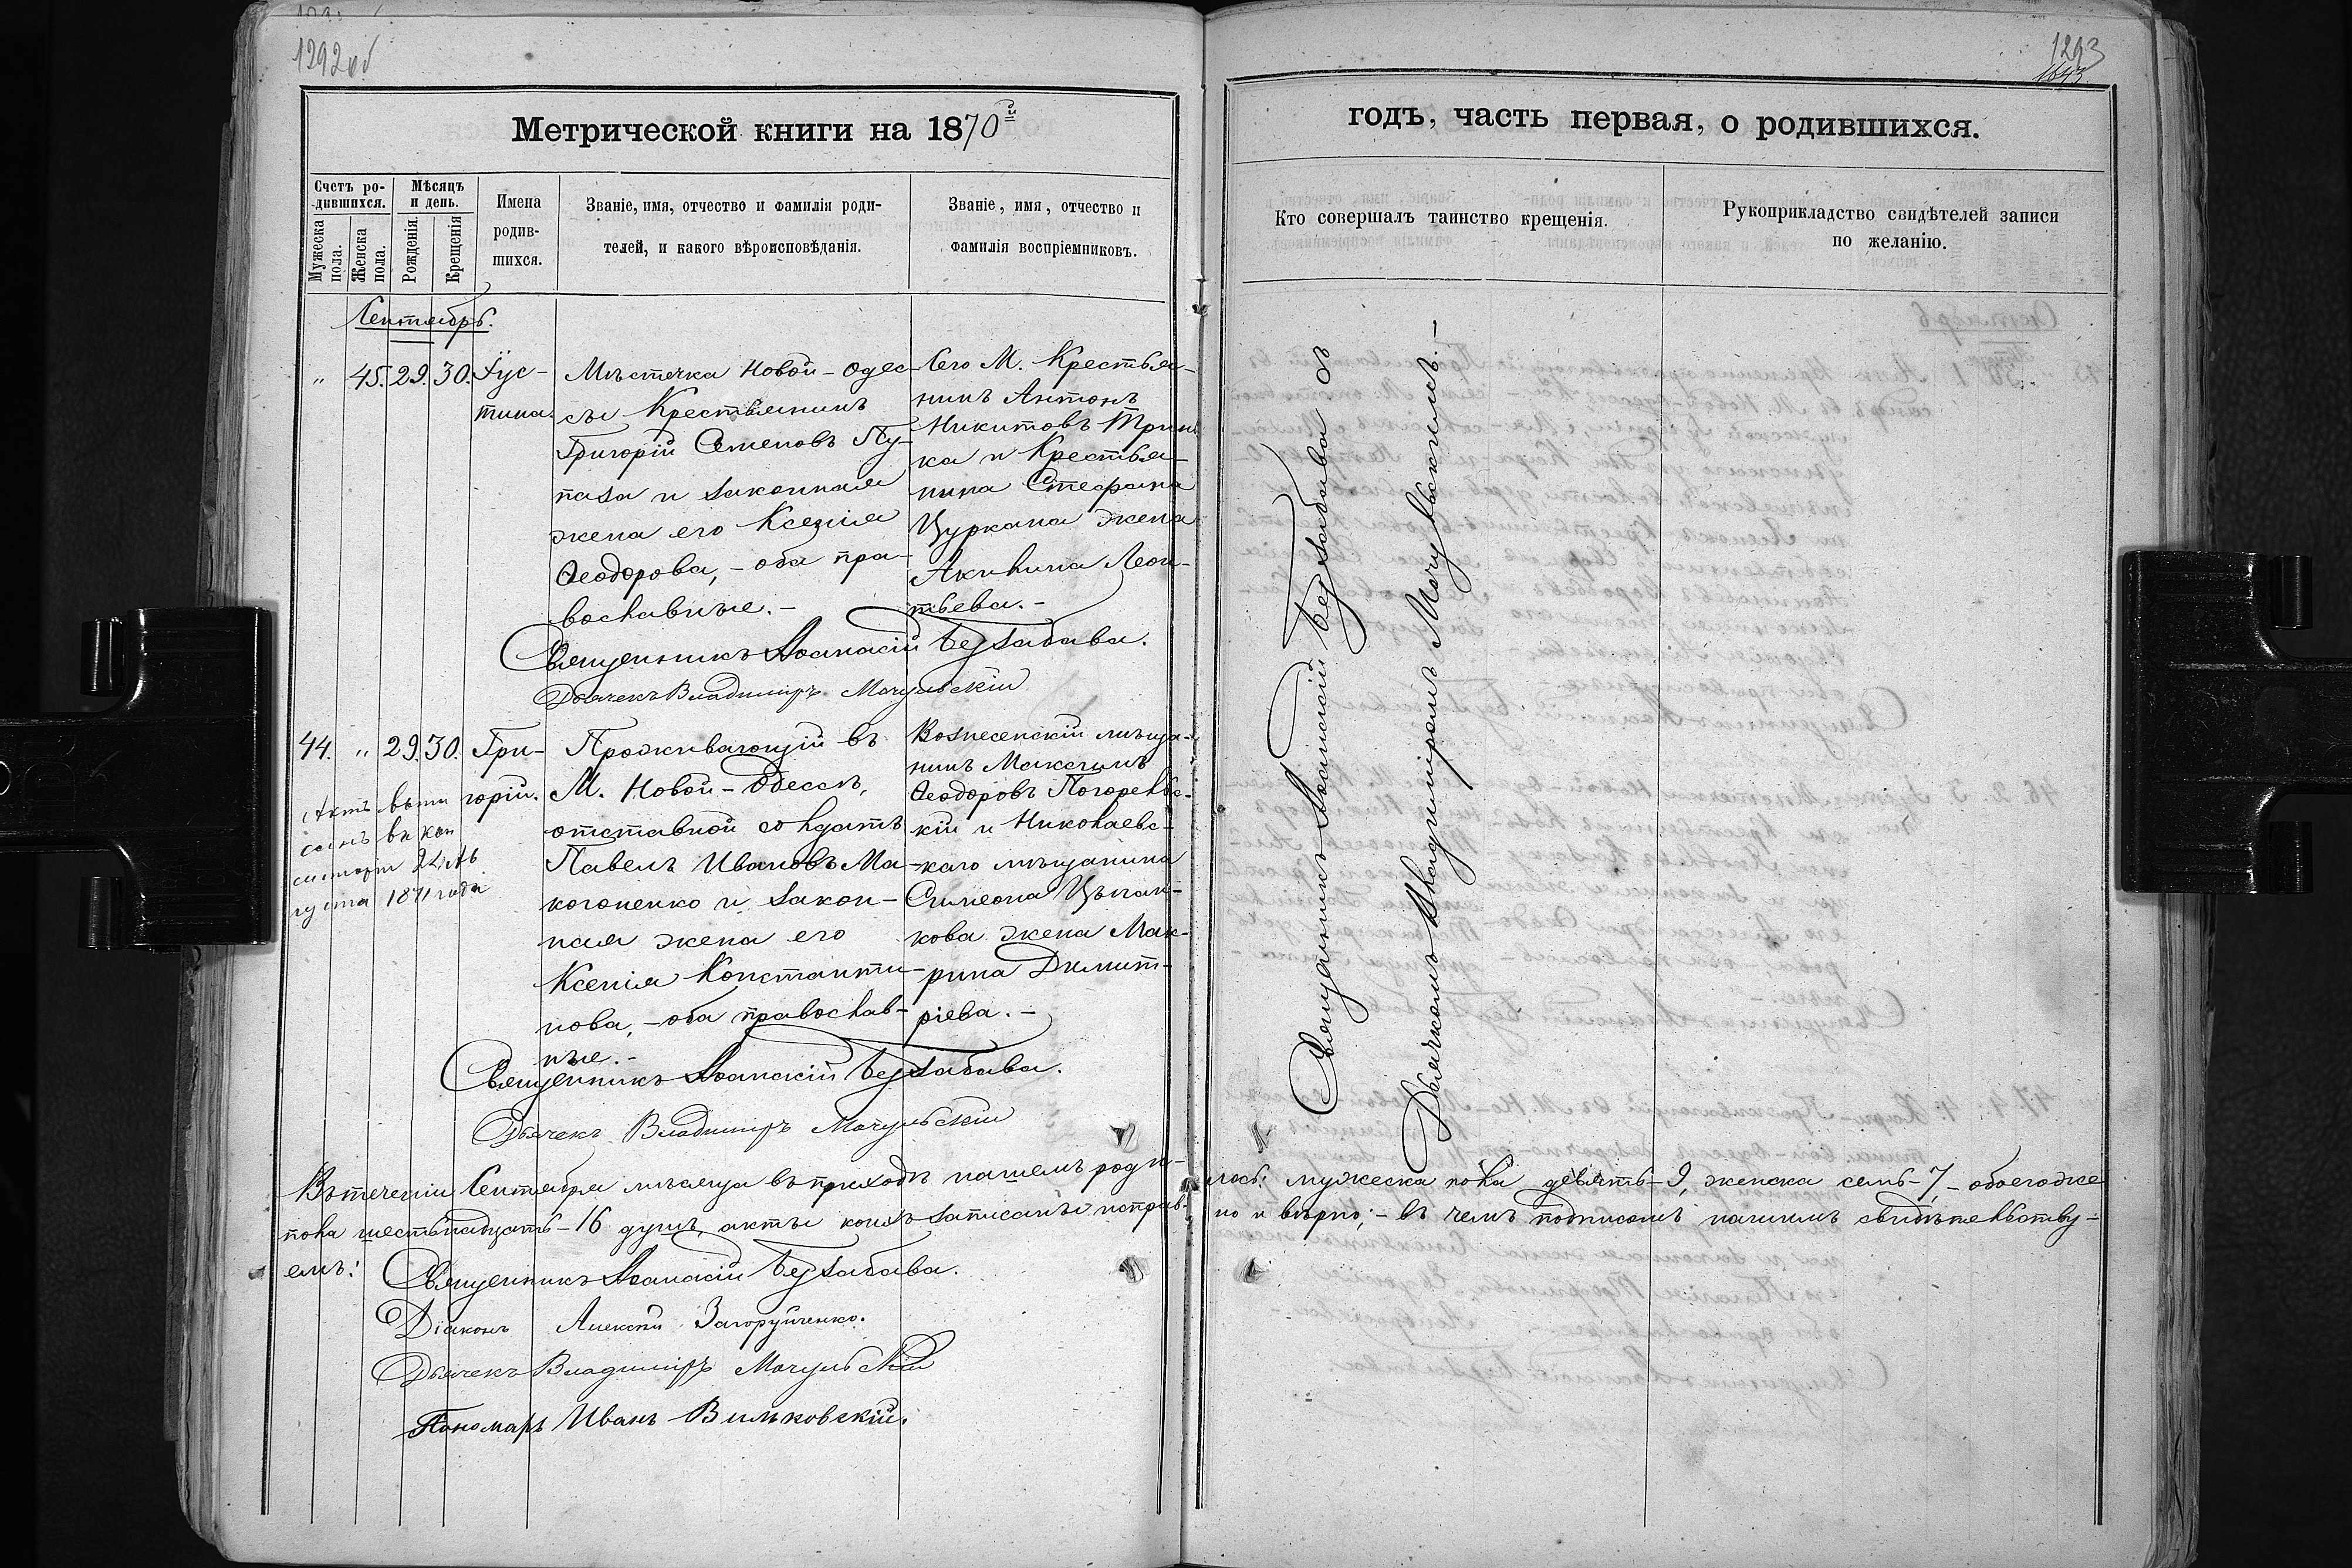 1292об
1293
1643
Метрической книги на 1870й
годъ, часть первая, о родившихся.
Счетъ родившихся.
Мужеска пола.
Женска пола.
Мѣсяцъ и день.
Рожденія.
Крещенія
Имена родившихся.
Званіе, имя, отчество и фамилія родителей, и какого вѣроисповѣданія.
Званіе, имя, отчество и фамилія воспріемниковъ.
Кто совершалъ таинство крещенія.
Рукоприкладство свидѣтелей записи по желанію.
Сентябрь.
" 45. 29. 30. Іус-
тина.
Мѣстечка Новой-Одес-
сы Крестьянинъ
Григорій Семеновъ Пу-
паза и законная
жена его Ксенія
Ѳеодорова, - оба пра-
вославные. -
Сего М. Крестья-
нинъ Антонъ
Никитовъ
ка и Крестья-
нина Стефана
Цуркана жена
Акилина Леон-
тьева. -
Священникъ Аѳанасій Беззабава.
Дьячекъ Владиміръ Мачульскій
44. " 29. 30. Гри-
горій.
Актъ выпи
санъ въ кон
систоріи 22 Ав
густа 1871 года
Проживающій въ
М. Новой-Одессѣ,
отставной солдатъ
Павелъ Ивановъ Ма-
когоненко и закон-
ная жена его
Ксенія Константи-
нова, - оба православ-
ные. -
Вознесенскій мѣща-
нинъ Максимъ
Ѳеодоровъ Погорельс-
кій и Николаевс-
каго мѣщанина
Симеона Цыган-
кова жена Мак-
рина Димит-
ріева. -
Священникъ Аѳанасій Беззабава.
Дьячекъ Владиміръ Мачульскій
Священникъ Аѳанасій Беззабава съ
Дьячкомъ Владиміромъ Мачульскимъ. -
Въ теченіи Сентября мѣсяца въ приходѣ нашемъ роди-лось: мужеска пола девять-9, женска семь-7, - обоегоже
пола шестьнадцать-16 душъ, акты коихъ записаны исправ-но и вѣрно; - въ чемъ подписомъ нашимъ свидѣтельству-
емъ:
Священникъ Аѳанасій Беззабава.
Діаконъ Алексій Загоруйченко.
Дьячекъ Владиміръ Мачульскій
Пономарь Иванъ Вильковскій.